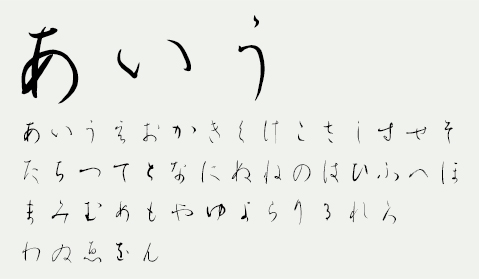 あいう
あいうえおかきくけこさしすせそ
たちつてとなにぬねのはひふへほ
まみむめもやゆよらりるれろ
わゐゑをん